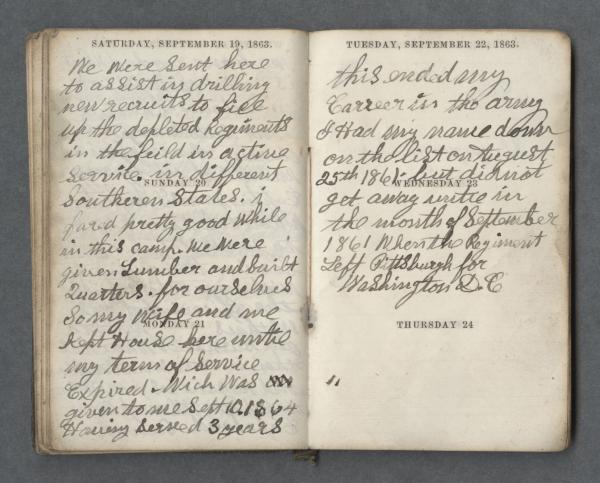 SATURDAY, SEPTEMBER 19, 1863.
We Were Sent here
to assist in drilling
new recruits to fill
up the depleted Regiments
in the feild in active
Service. in different
SUNDAY 20
Southeren States. i
fared pretty good While
in this camp. We Were
given Lumber and built
Quarters. for ourselves
So my Wife and me
MONDAY 21
Kept House here untie
my term of Service
Expired. Wich Was on
given to me Sept 10. 1864
Having Served 3 years
TUESDAY, SEPTEMBER 22, 1863.
this ended my
Carreer in the army
I Had my name down
on the list on August
25th 1861. but did not
WEDNESDAY 23
get away untie in
the month of September
1861 When the Regiment
Left Pittsburgh for
Washington D.C
THURSDAY 24